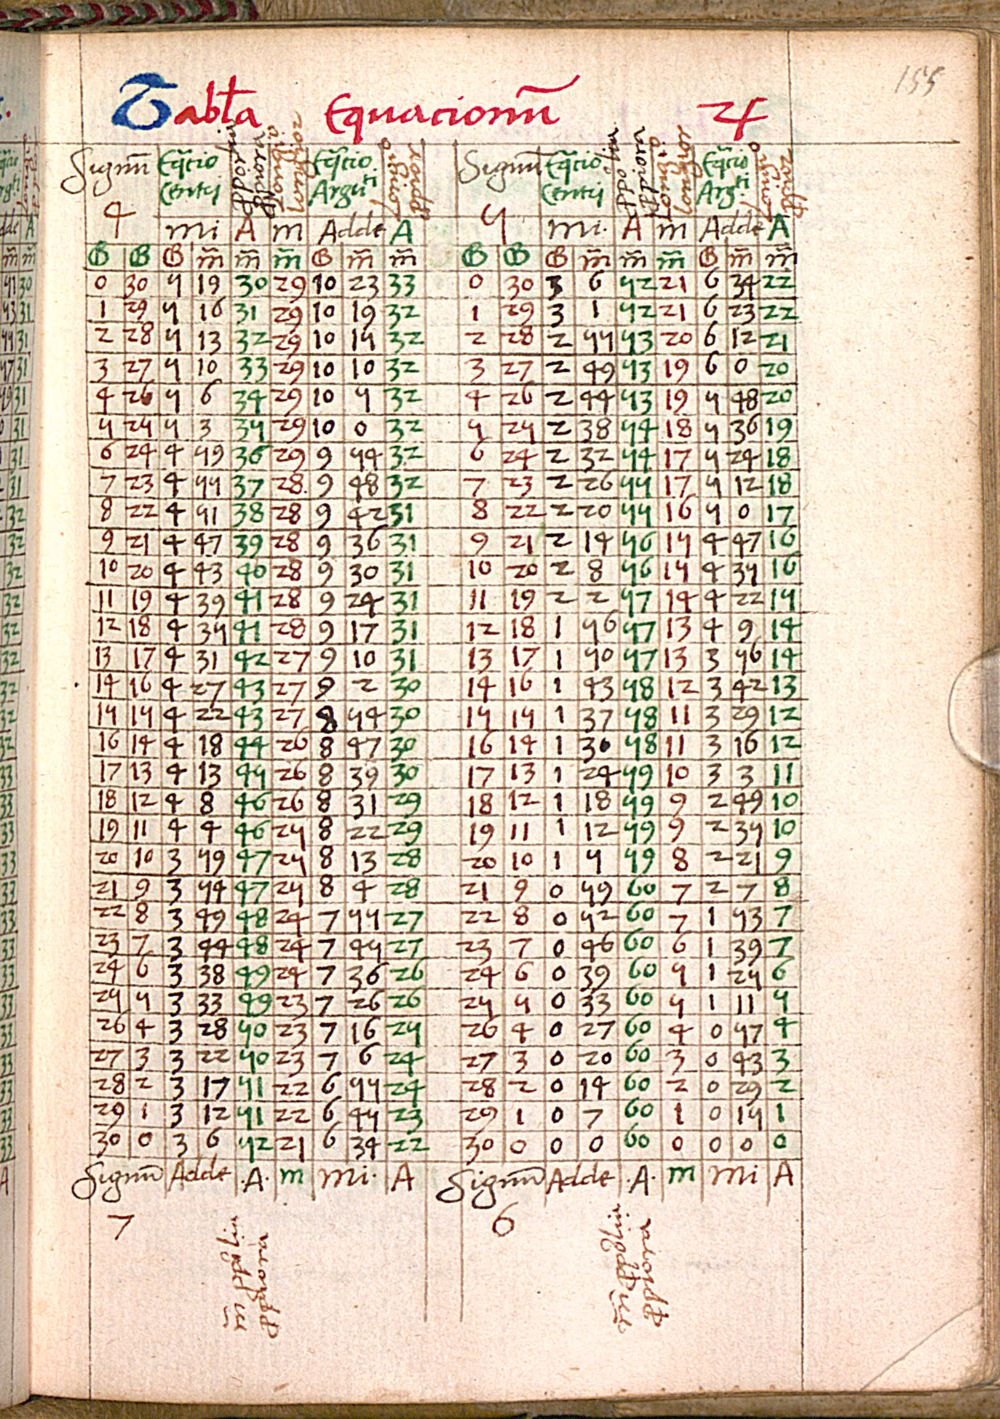 155
Tabła Equacionū ♃
Signū Eq̄cio Eq̄cio Signū Eq̄cio Eq̄cio
Centri Argūti Centri Argti
longior longior
4 mi A m Adde A 5 mi. A m Adde A
G G G m̄ m̄ m̄ G m̄ m̄ G G G m̄ m̄ m̄ G m̄ m̄
0 30 5 19 30 29 10 23 33 0 30 3 6 52 21 6 34 22
1 29 5 16 31 29 10 19 32 1 29 3 1 52 21 6 23 22
2 28 5 13 32 29 10 15 32 2 28 2 55 53 20 6 12 21
3 27 5 10 33 29 10 10 32 3 27 2 49 53 19 6 0 20
4 26 5 6 34 29 10 5 32 4 26 2 44 53 19 5 48 20
5 25 5 3 35 29 10 0 32 5 25 2 38 54 18 5 36 19
6 24 4 59 36 29 9 54 32 6 24 2 32 54 17 5 24 18
7 23 4 55 37 28 9 48 32 7 23 2 26 55 17 5 12 18
8 22 4 51 38 28 9 42 31 8 22 2 20 55 16 5 0 17
9 21 4 47 39 28 9 36 31 9 21 2 14 56 15 4 47 16
10 20 4 43 40 28 9 30 31 10 20 2 8 56 15 4 35 16
11 19 4 39 41 28 9 24 31 11 19 2 2 57 14 4 22 15
12 18 4 35 41 28 9 17 31 12 18 1 56 57 13 4 9 14
13 17 4 31 42 27 9 10 31 13 17 1 50 57 13 3 56 14
14 16 4 27 43 27 9 2 30 14 16 1 43 58 12 3 42 13
15 15 4 22 43 27 8 54 30 15 15 1 37 58 11 3 29 12
16 14 4 18 44 26 8 47 30 16 14 1 30 58 11 3 16 12
17 13 4 13 45 26 8 39 30 17 13 1 24 59 10 3 3 11
18 12 4 8 46 26 8 31 29 18 12 1 18 59 9 2 49 10
19 11 4 4 46 25 8 22 29 19 11 1 12 59 9 2 35 10
20 10 3 59 47 25 8 13 28 20 10 1 5 59 8 2 21 9
21 9 3 54 47 25 8 4 28 21 9 0 59 60 7 2 7 8
22 8 3 49 48 24 7 55 27 22 8 0 52 60 7 1 53 7
23 7 3 44 48 24 7 45 27 23 7 0 46 60 6 1 39 7
24 6 3 38 49 24 7 36 26 24 6 0 39 60 5 1 25 6
25 5 3 33 49 23 7 26 26 25 5 0 33 60 5 1 11 5
26 4 3 28 50 23 7 16 25 26 4 0 27 60 4 0 57 4
27 3 3 22 50 23 7 6 24 27 3 0 20 60 3 0 43 3
28 2 3 17 51 22 6 55 24 28 2 0 14 60 2 0 29 2
29 1 3 12 51 22 6 45 23 29 1 0 7 60 1 0 15 1
30 0 3 6 52 21 6 34 22 30 0 0 0 60 0 0 0 0
Signū Adde .A. m mi. A Signū Adde .A. m mi A
7 6